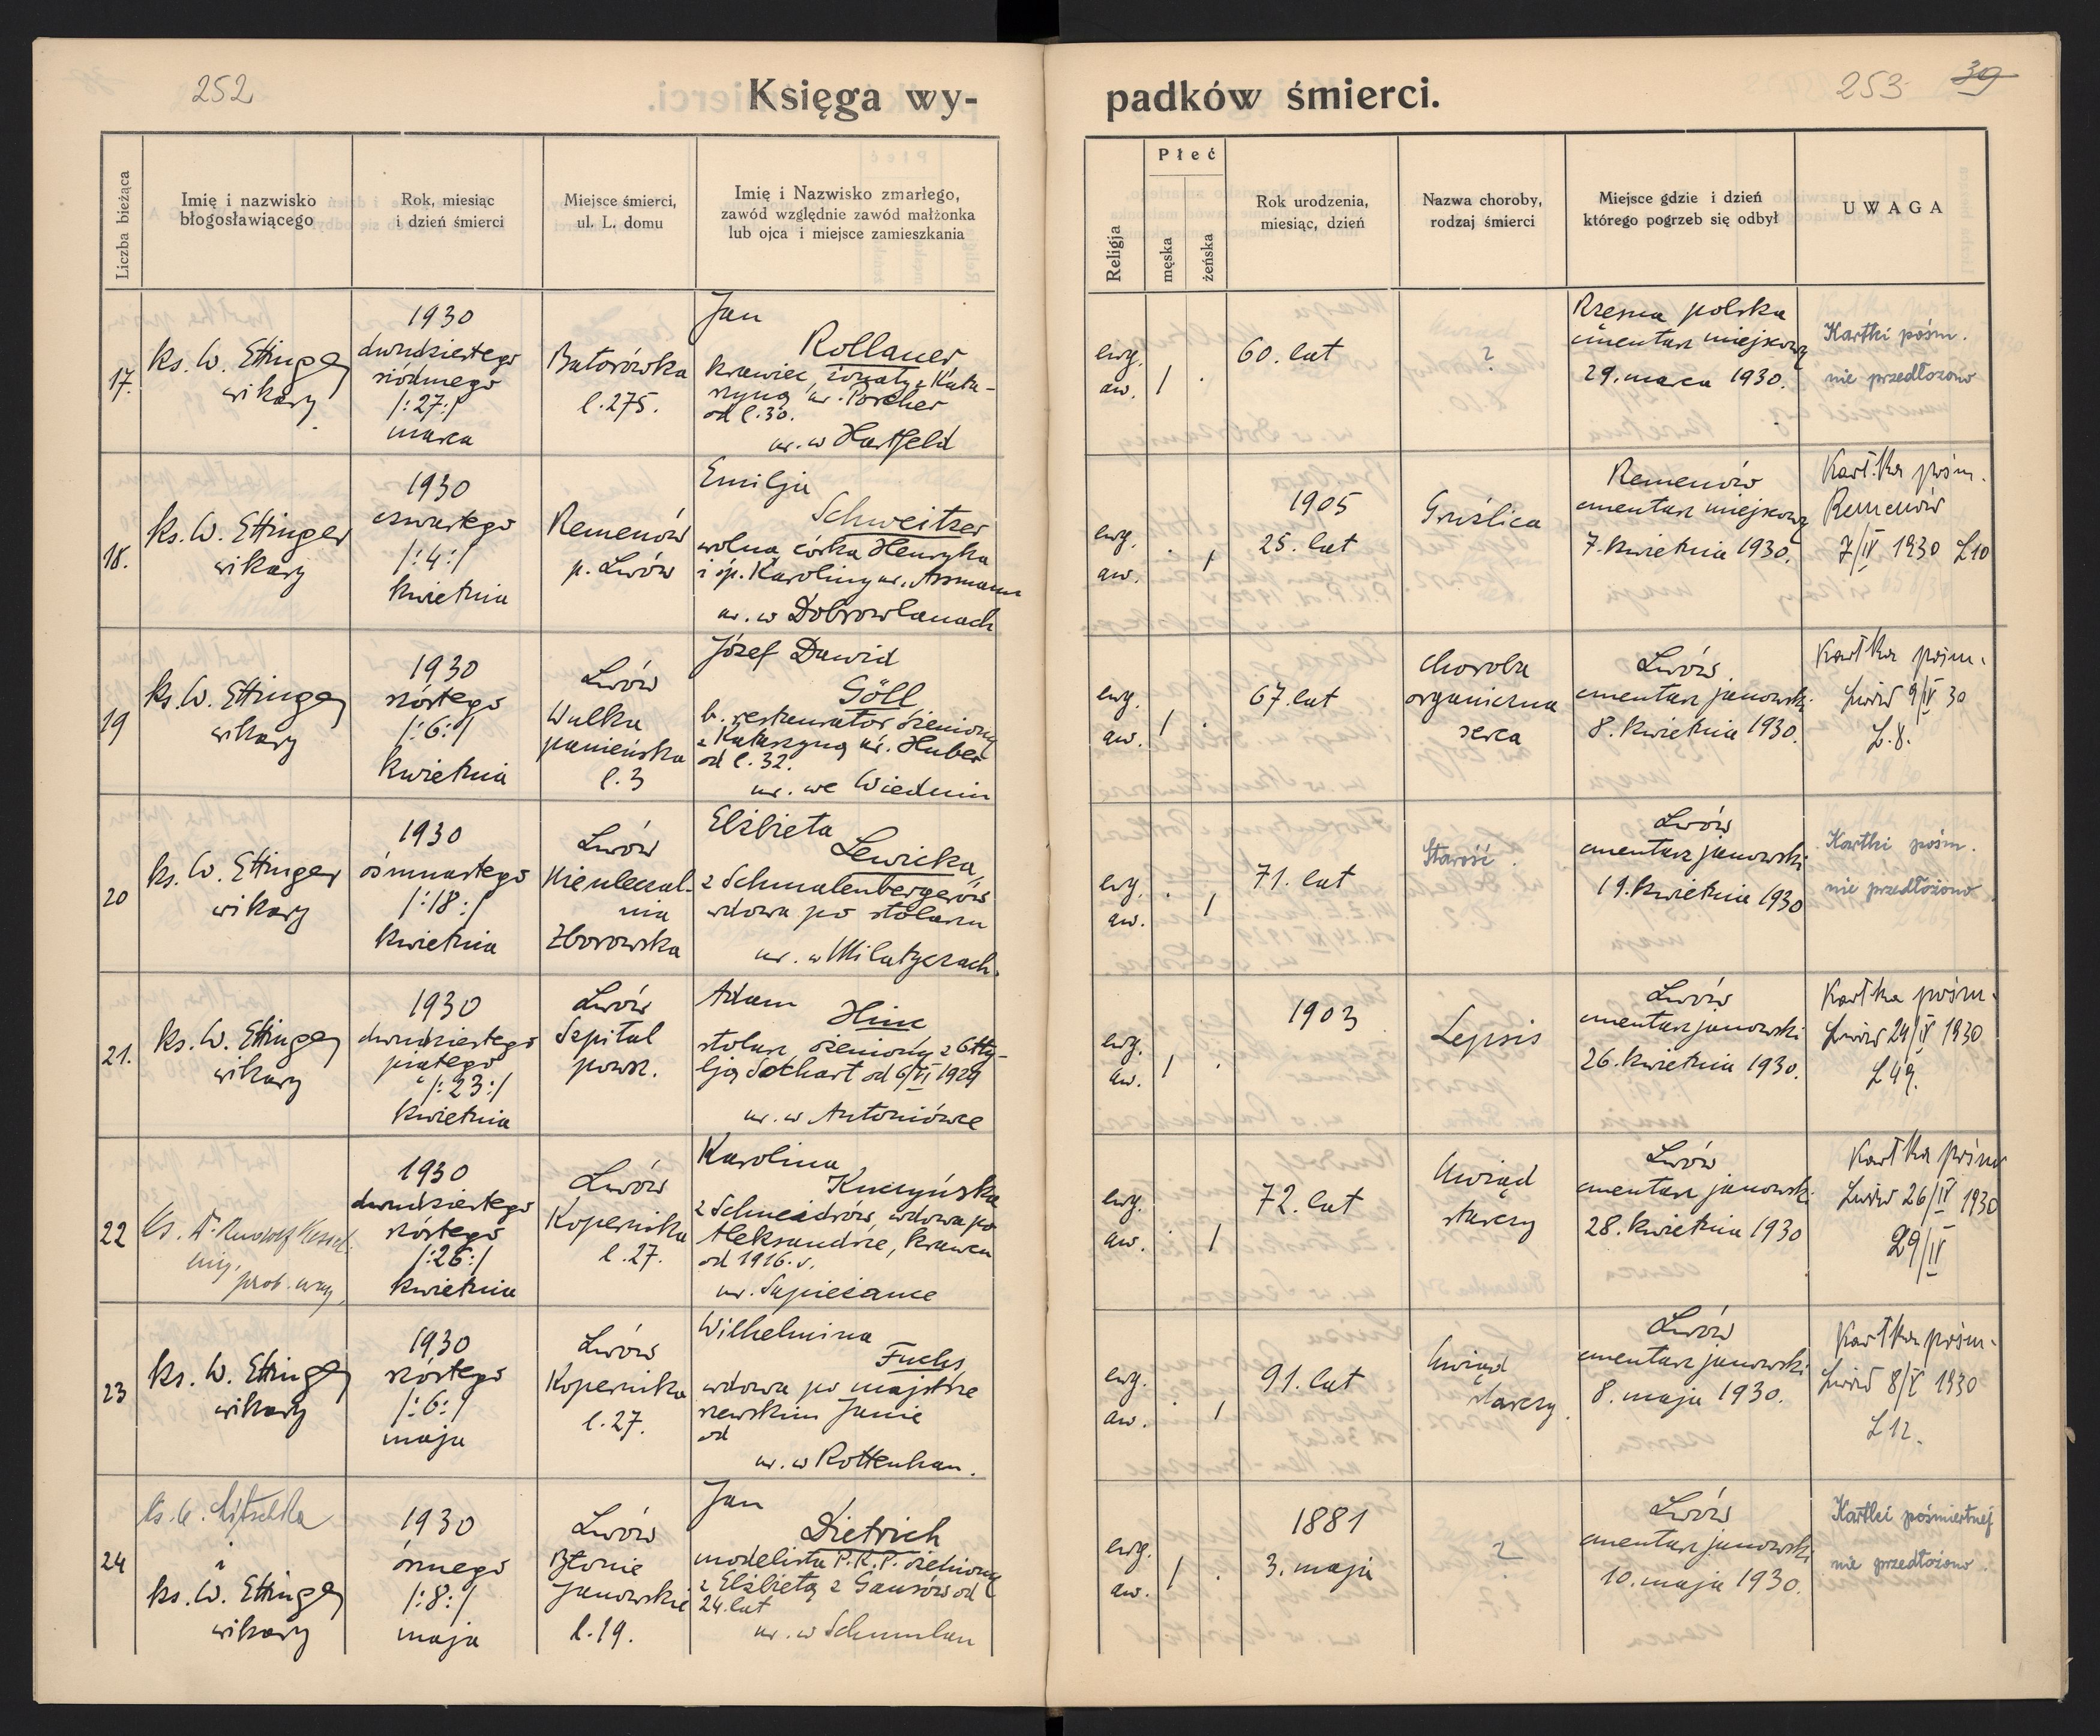 252
Księga wy-
padków śmierci.
253
39
Liczba bieżąca
Imię i nazwisko
błogosławiącego
Rok, miesiąc
i dzień śmierci
Miejsce śmierci,
ul. L. domu
Imię i Nazwisko zmarłego,
zawód względnie zawód małżonka
lub ojca i miejsce zamieszkania
Religja
Płeć
męska
żeńska
Rok urodzenia,
miesiąc, dzień
Nazwa choroby,
rodzaj śmierci
Miejsce gdzie i dzień
którego pogrzeb się odbył
UWAGA
17.
ks. W. Ettinger
wikary
1930
dwudziestego
siódmego
/:27:/
marca
Batorówka
l. 275.
Jan
Rollauer
krawiec, żonaty z Kata-
rzyną ur. Porcher
od l. 30.
ur. w Hartfeld
ewg.
aw.
/
.
60. lat
?
Rzęsna polska
cmentarz miejscowy
29. marca 1930.
Kartki pośm.
nie przedłożono
18.
ks. W. Ettinger
wikary
1930
czwartego
/:4:/
kwietnia
Remenów
p. Lwów
Emilja
Schweitzer
wolna, córka Henryka
i śp. Karoliny ur. Assmann
ur. w Dobrowlanach
ewg.
aw.
.
/
1905
25. lat
Gruźlica
Remenów
cmentarz miejscowy
7. kwietnia 1930.
Kartka pośm.
Remenów
7/IV 1930 L10
19
ks. W. Ettinger
wikary
1930
szóstego
/:6:/
kwietnia
Lwów
Wulka
panieńska
l. 3
Józef Dawid
Göll
b. restaurator żeniony
z Katarzyną ur. Huber
od l. 32.
ur. we Wiedniu
ewg.
aw.
/
.
67. lat
choroba
organiczna
serca
Lwów
cmentarz janowski
8. kwietnia 1930.
Kartka pośm.
Lwów 9/IV 30
L. 8.
20
ks. W. Ettinger
wikary
1930
ósmnastego
/:18:/
kwietnia
Lwów
Nieuleczal-
nia
Zborowska
Elżbieta
Lewicka,
z Schmalenbergerów
wdowa po stolarzu
ur. w Milatyczach.
ewg.
aw.
.
/
71. lat
Starość.
Lwów
cmentarz janowski
19. kwietnia 1930
Kartki pośm.
nie przedłożono
21.
ks. W. Ettinger
wikary
1930
dwudziestego
piątego
/:23:/
kwietnia
Lwów
Szpital
powsz.
Adam
stolarz ożeniony z Otty-
lją od 6/VI 1929
ur. w Antoniówce
ewg.
aw.
/
.
1903
Lepsis
Lwów
cmentarz janowski
26. kwietnia 1930.
Kartka pośm.
Lwów 24/IV 1930
L 49.
22
ks. Dr. Rudolf Kessel
prob.
1930
dwudziestego
szóstego
/:26:/
kwietnia
Lwów
Kopernika
l. 27.
Karolina
Kuczyńska
z Schneidrów, wdowa po
Aleksandrze, krawcu
od 1916. r.
ur. Sapieżance
ewg.
aw.
.
/
72. lat
Uwiąd
starczy
Lwów
cmentarz janowski
28. kwietnia 1930
Kartka pośm
Lwów 26/IV 1930
29/IV
23
ks. W. Ettinger
wikary
1930
szóstego
/:6:/
maja
Lwów
Kopernika
l. 27.
Wilhelmina
Fuchs
wdowa po majstrze
szewskim Janie
od
ur. w Rottenhan.
ewg.
aw.
.
/
91. lat
Uwiąd
starczy.
Lwów
cmentarz janowski
8. maja 1930.
Kartka pośm.
Lwów 8/V 1930
L 12.
24
i
ks. W. Ettinger
wikary
1930
ósmego
/:8:/
maja
Lwów
Błonie
Janowskie
l. 19.
Jan
Dietrich
modelista P.K.P. żeniony
z Elżbietą z Gausów od
24. lat
ur. w Schumlau
ewg.
aw.
/
.
1881
3. maja
?
Lwów
cmentarz janowski
10. maja 1930.
Kartki pośmiertnej
nie przedłożono.